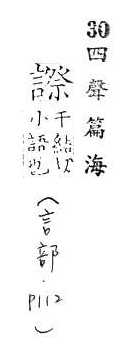 30四聲篇海
千結切
小語也
(言部.P112)